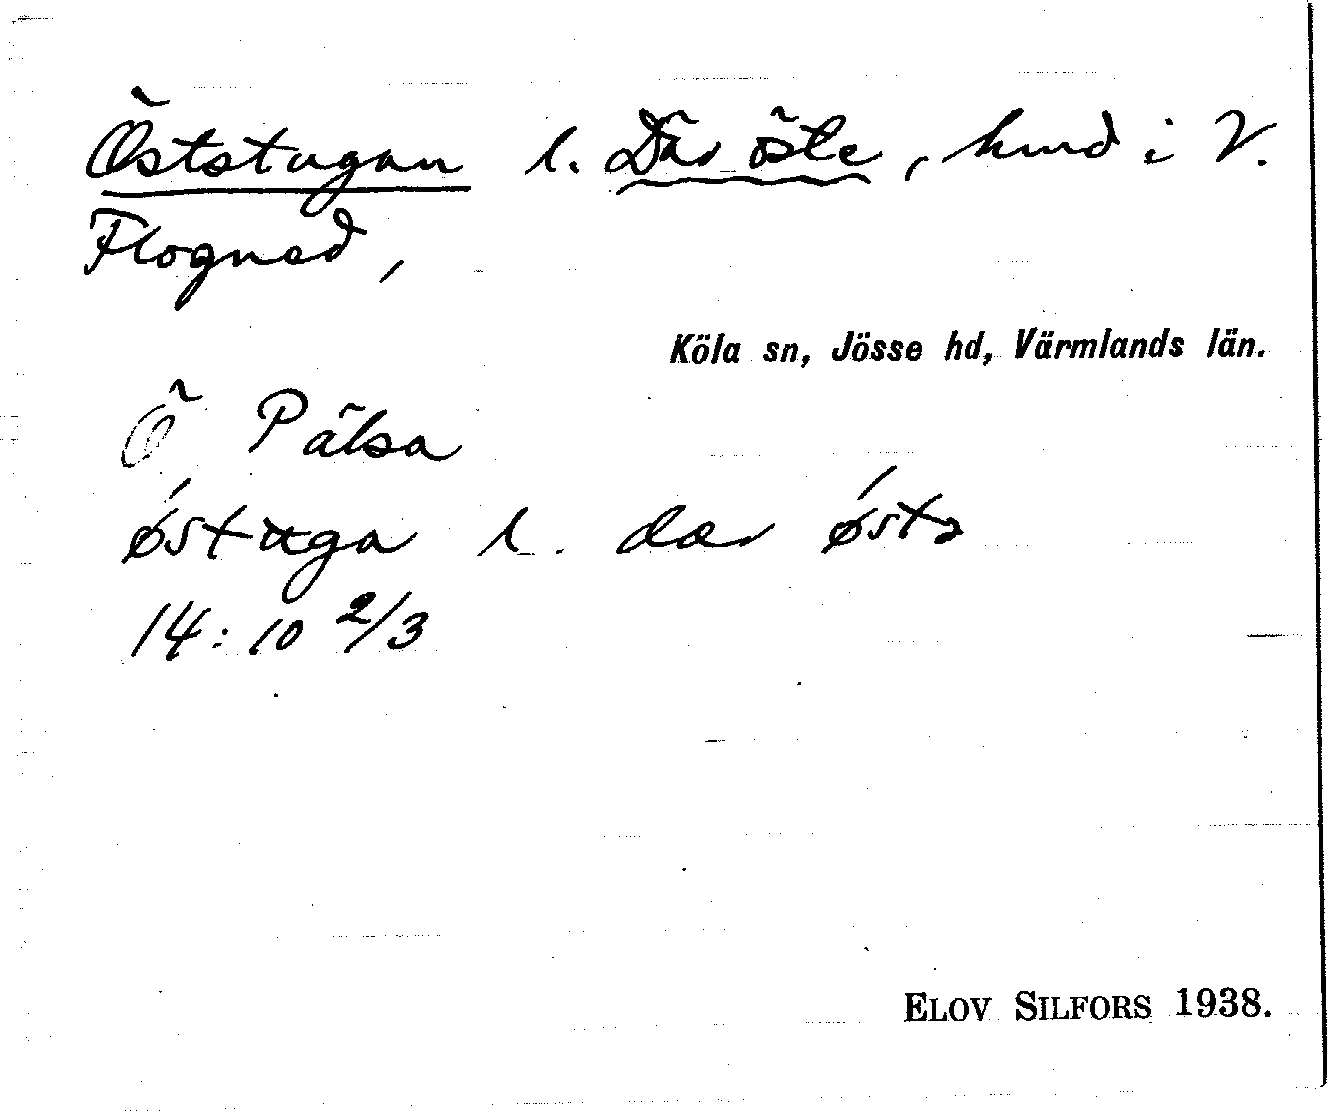 Öststugan l. Där öste, hmd i V.
Flogned,
Köla sn, Jösse hd, Värmlands län.
Ö Pälsa
østuga l. dær østə
14:10 2/3
ELOV SILFORS 1938.